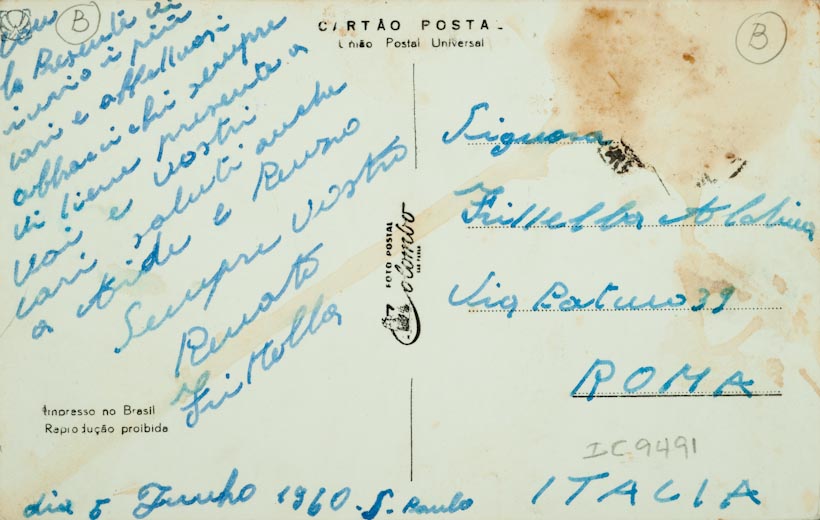 B
CARTÃO POSTAL
União Postal Universal
B
Con
la Presente vi
invio i più
cari e affettuosi
abbracci chi sempre
vi tiene presente a
voi e vostri
cari saluti anche
a Aide e Renzo
Sempre Vostro
Renato
Fritella
Signora
Fritella Aldina
Via 39
ROMA
ITALIA
IC9491
FOTO POSTAL
Colombo
SÃO PAULO
Impresso no Brasil
Reprodução proibida
dia 5 Junho 1960. S. Paulo